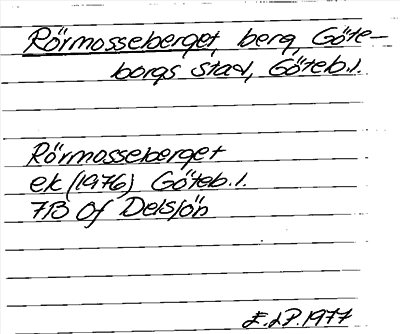 Rörmosseberget, berg, Göte-
borgs stad, Göteb.l.
Rörmosseberget
ek (1976) Göteb.l.
7B 0f Delsjön
E.LP. 1977